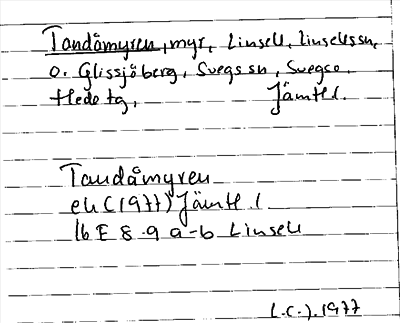 Tandåmyren, myr, Linsell, Linsells sn,
o. Glissjöberg, Svegs sn, Svegs o.
Hede tg, Jämtl.
Tandåmyren
ek (1977) Jämtl.
16 E 8-9 a-b Linsell
L.C.J. 1977